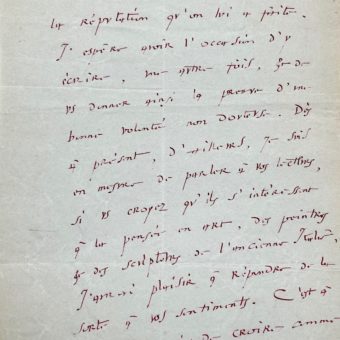 la réputation qu'on lui a faite.
J'espère avoir l'occasion d'y
écrire, une autre fois, & de
vs donner ainsi la preuve d'une
bonne volonté non douteuse. Dès
à présent, d'ailleurs, je suis
en mesure de parler à vos lecteurs,
si vs croyez qu'ils s'intéressent
à la pensée en art, des peintres
& des sculpteurs de l'ancienne Italie.
J'aurai plaisir à répondre de la
sorte à vos sentiments. C'est à
de croire comme